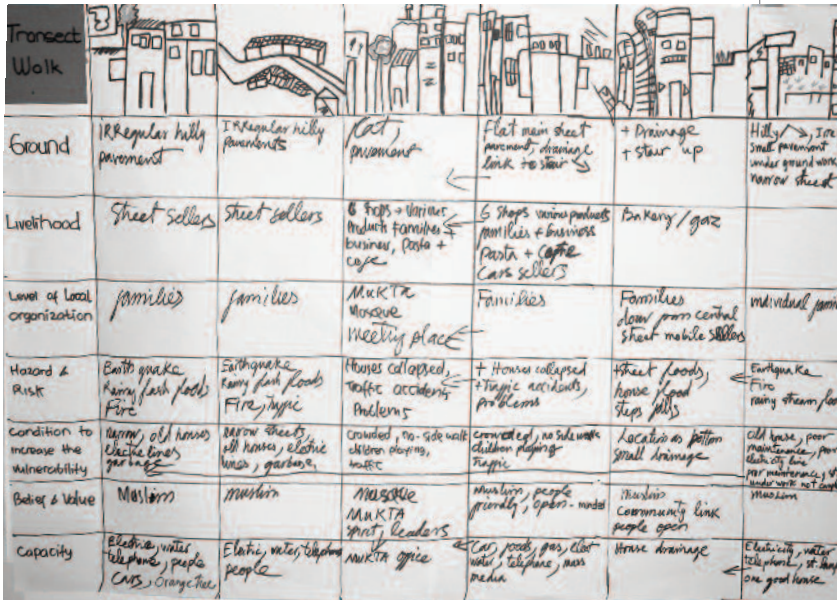 Transect
Walk
Ground
IRRegular hilly
pavement
IRRegular hilly
pavements
Flat,
pavement
Flat main street
pavement, drainage
link to stair
+ Drainage
+ stair up
Hilly
small pavement
under ground work
narrow street
Livelihood
Street sellers
street sellers
6 shops + various
Products families +
busines, Pasta +
cafe
6 Shops various products
families + business
Pasta +
Cars sellers
Bakery / gaz
Level of Local
organization
families
families
MUKTA
Mosque
Meeting place
Families
Families
down from central
street mobile sellers
individual
Hazard &
Risk
Earthquake
Rainy flash floods
Fire
Earthquake
Rainy flash floods
Fire,
Houses collapsed,
Traffic accidents
Problems
+ Houses collapsed
+ Traffic accidents,
problems
+ street floods,
house flood
steps falls
Earthquake
Fire
rainy stream
Condition to
increase the
vulnerability
narrow, old houses
electric lines
garbage
narrow streets,
old houses, eletric
lines, garbage,
crowded, no-side walk
children playing,
traffic
crowded, no side walk
children playing
Traffic
Location as bottom
small drainage
old house, poor
maintenance, poor
electricity line
poor maintenance,
under work not
Belief & Value
Muslims
muslim
Mosque
MUKTA
spirit, leaders
Muslim, people
friendly, open-minded
muslim
Community link
people open
muslim
Capacity
Electric, water
telephone, people
CARS, Orange tree
Electric, water, telephone
people
MUKTA office
Car, foods, gas,
water, telephone, mass
media
House drainage
Electricity, water
telephone,
one good house